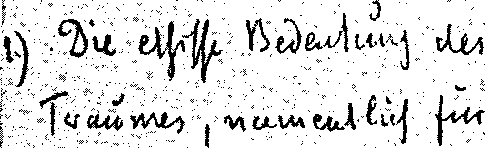 1) Die ethische Bedeutung des
Traumes, namentlich für